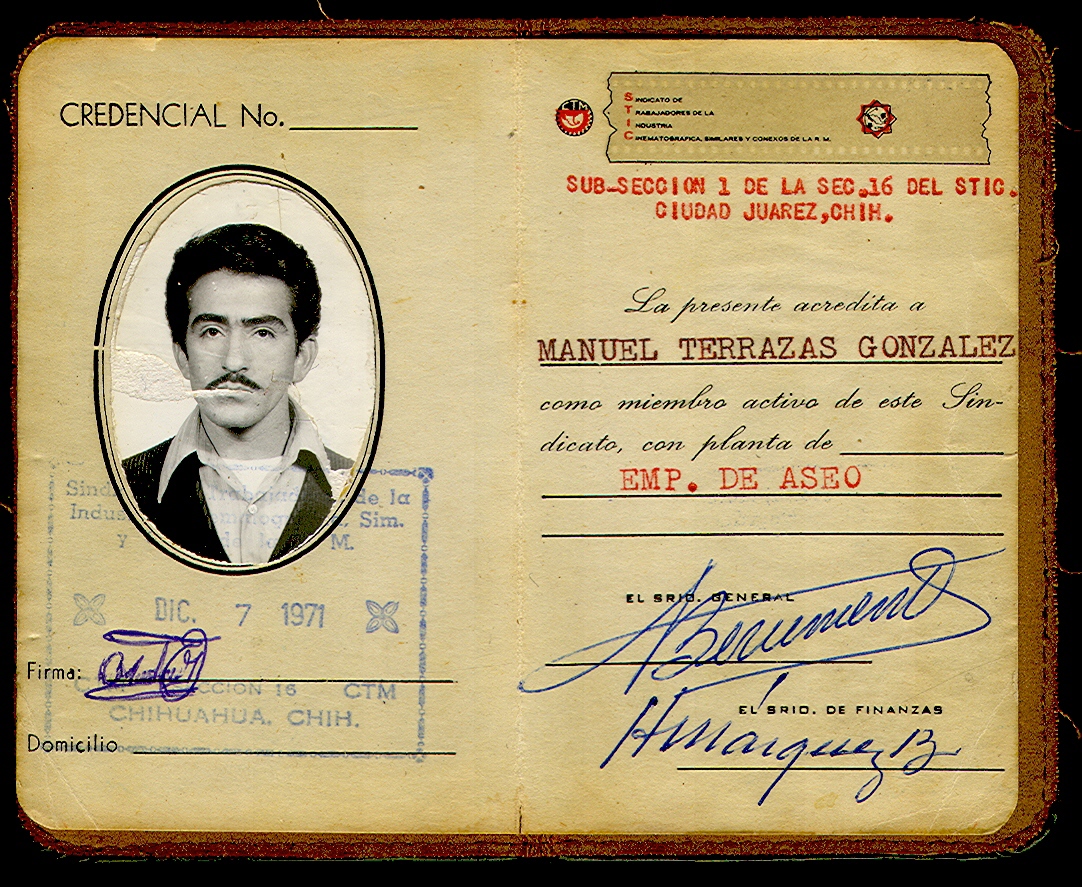 CREDENCIAL No.
Sind Trabajad de la
Indus , Sim.
y M.
DIC. 7 1971
Firma:
CCION 16 CTM
CHIHUAHUA, CHIH.
Domicilio
CTM
SINDICATO DE
TRABAJADORES DE LA
INDUSTRIA
CINEMATOGRAFICA, SIMILARES Y CONEXOS DE LA R. M.
SUB-SECCION 1 DE LA SEC.16 DEL STIC.
CIUDAD JUAREZ,CHIH.
La presente acredita a
MANUEL TERRAZAS GONZALEZ
como miembro activo de este Sin-
dicato, con planta de
EMP. DE ASEO
EL SRIO. GENERAL
EL SRIO. DE FINANZAS
HMárquez B